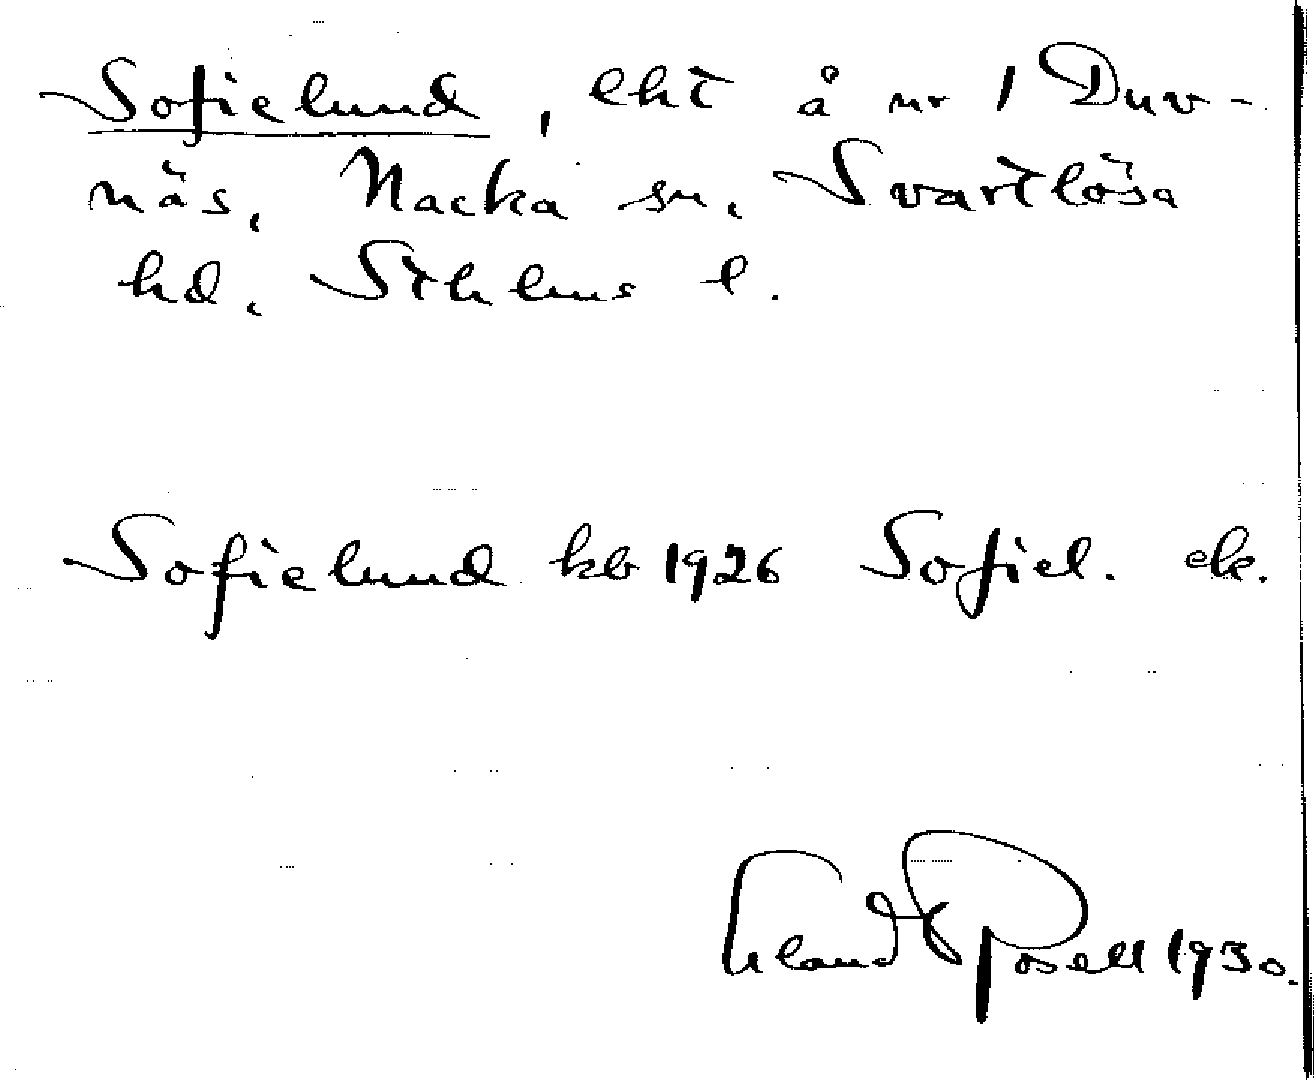 Sofielund, lht å nr 1 Duv-
näs, Nacka sn, Svartlösa
hd, Sthlms l.
Sofielund kb 1926 Sofiel. ek.
Erland Rosell 1930.